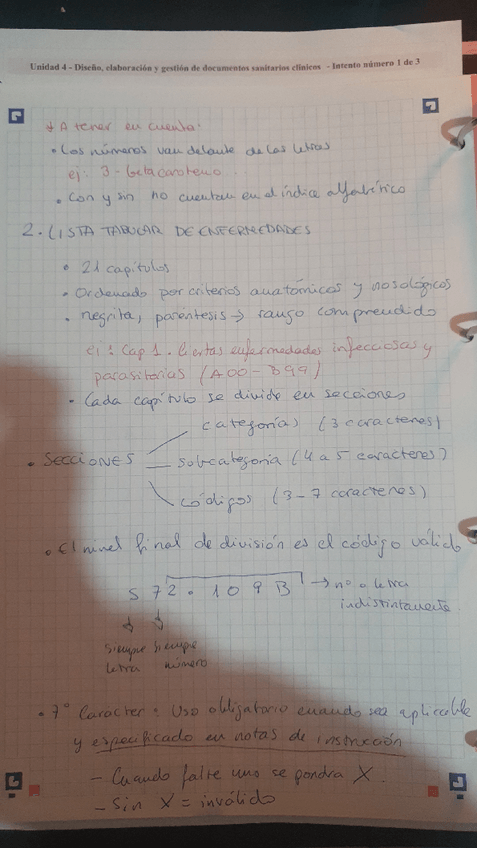 Unidad 4 - Diseño, elaboración y gestión de documentos sanitarios clínicos - Intento número 1 de 3
* A tener en cuenta:
• Los números van delante de las letras
ej: 3 - betacaroteno
• Con y sin no cuentan en el índice alfabético
2. LISTA TABULAR DE ENFERMEDADES
• 21 capítulos
• Ordenado por criterios anatómicos y nosológicos
• negrita, paréntesis → rango comprendido
ej: Cap 1. Ciertas enfermedades infecciosas y
parasitarias (A00 - B99)
• Cada capítulo se divide en secciones
categorías (3 caracteres)
• SECCIONES — subcategoría (4 a 5 caracteres)
códigos (3 - 7 caracteres)
• El nivel final de división es el código válido
S 7 2 . 1 0 9 B → nº o letra
indistintamente.
siempre siempre
letra número
• 7º Caracter: Uso obligatorio cuando sea aplicable
y especificado en notas de instrucción
- Cuando falte uno se pondra X.
- Sin X = inválido